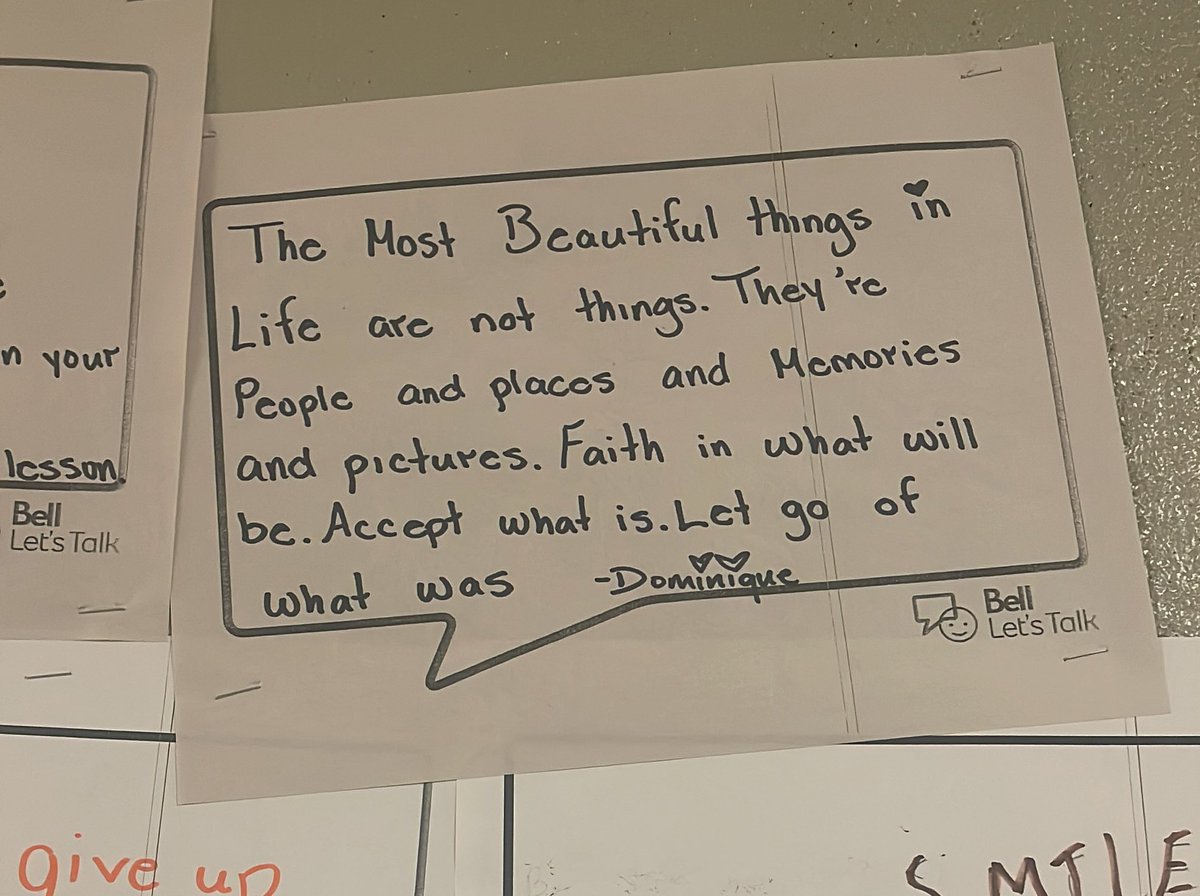 The Most Beautiful things in
Life are not things. They're
People and places and Memories
and pictures. Faith in what will
be. Accept what is. Let go of
what was -Dominique
Bell
Let's Talk
n your
lesson.
Bell
Let's Talk
give up
SMILE